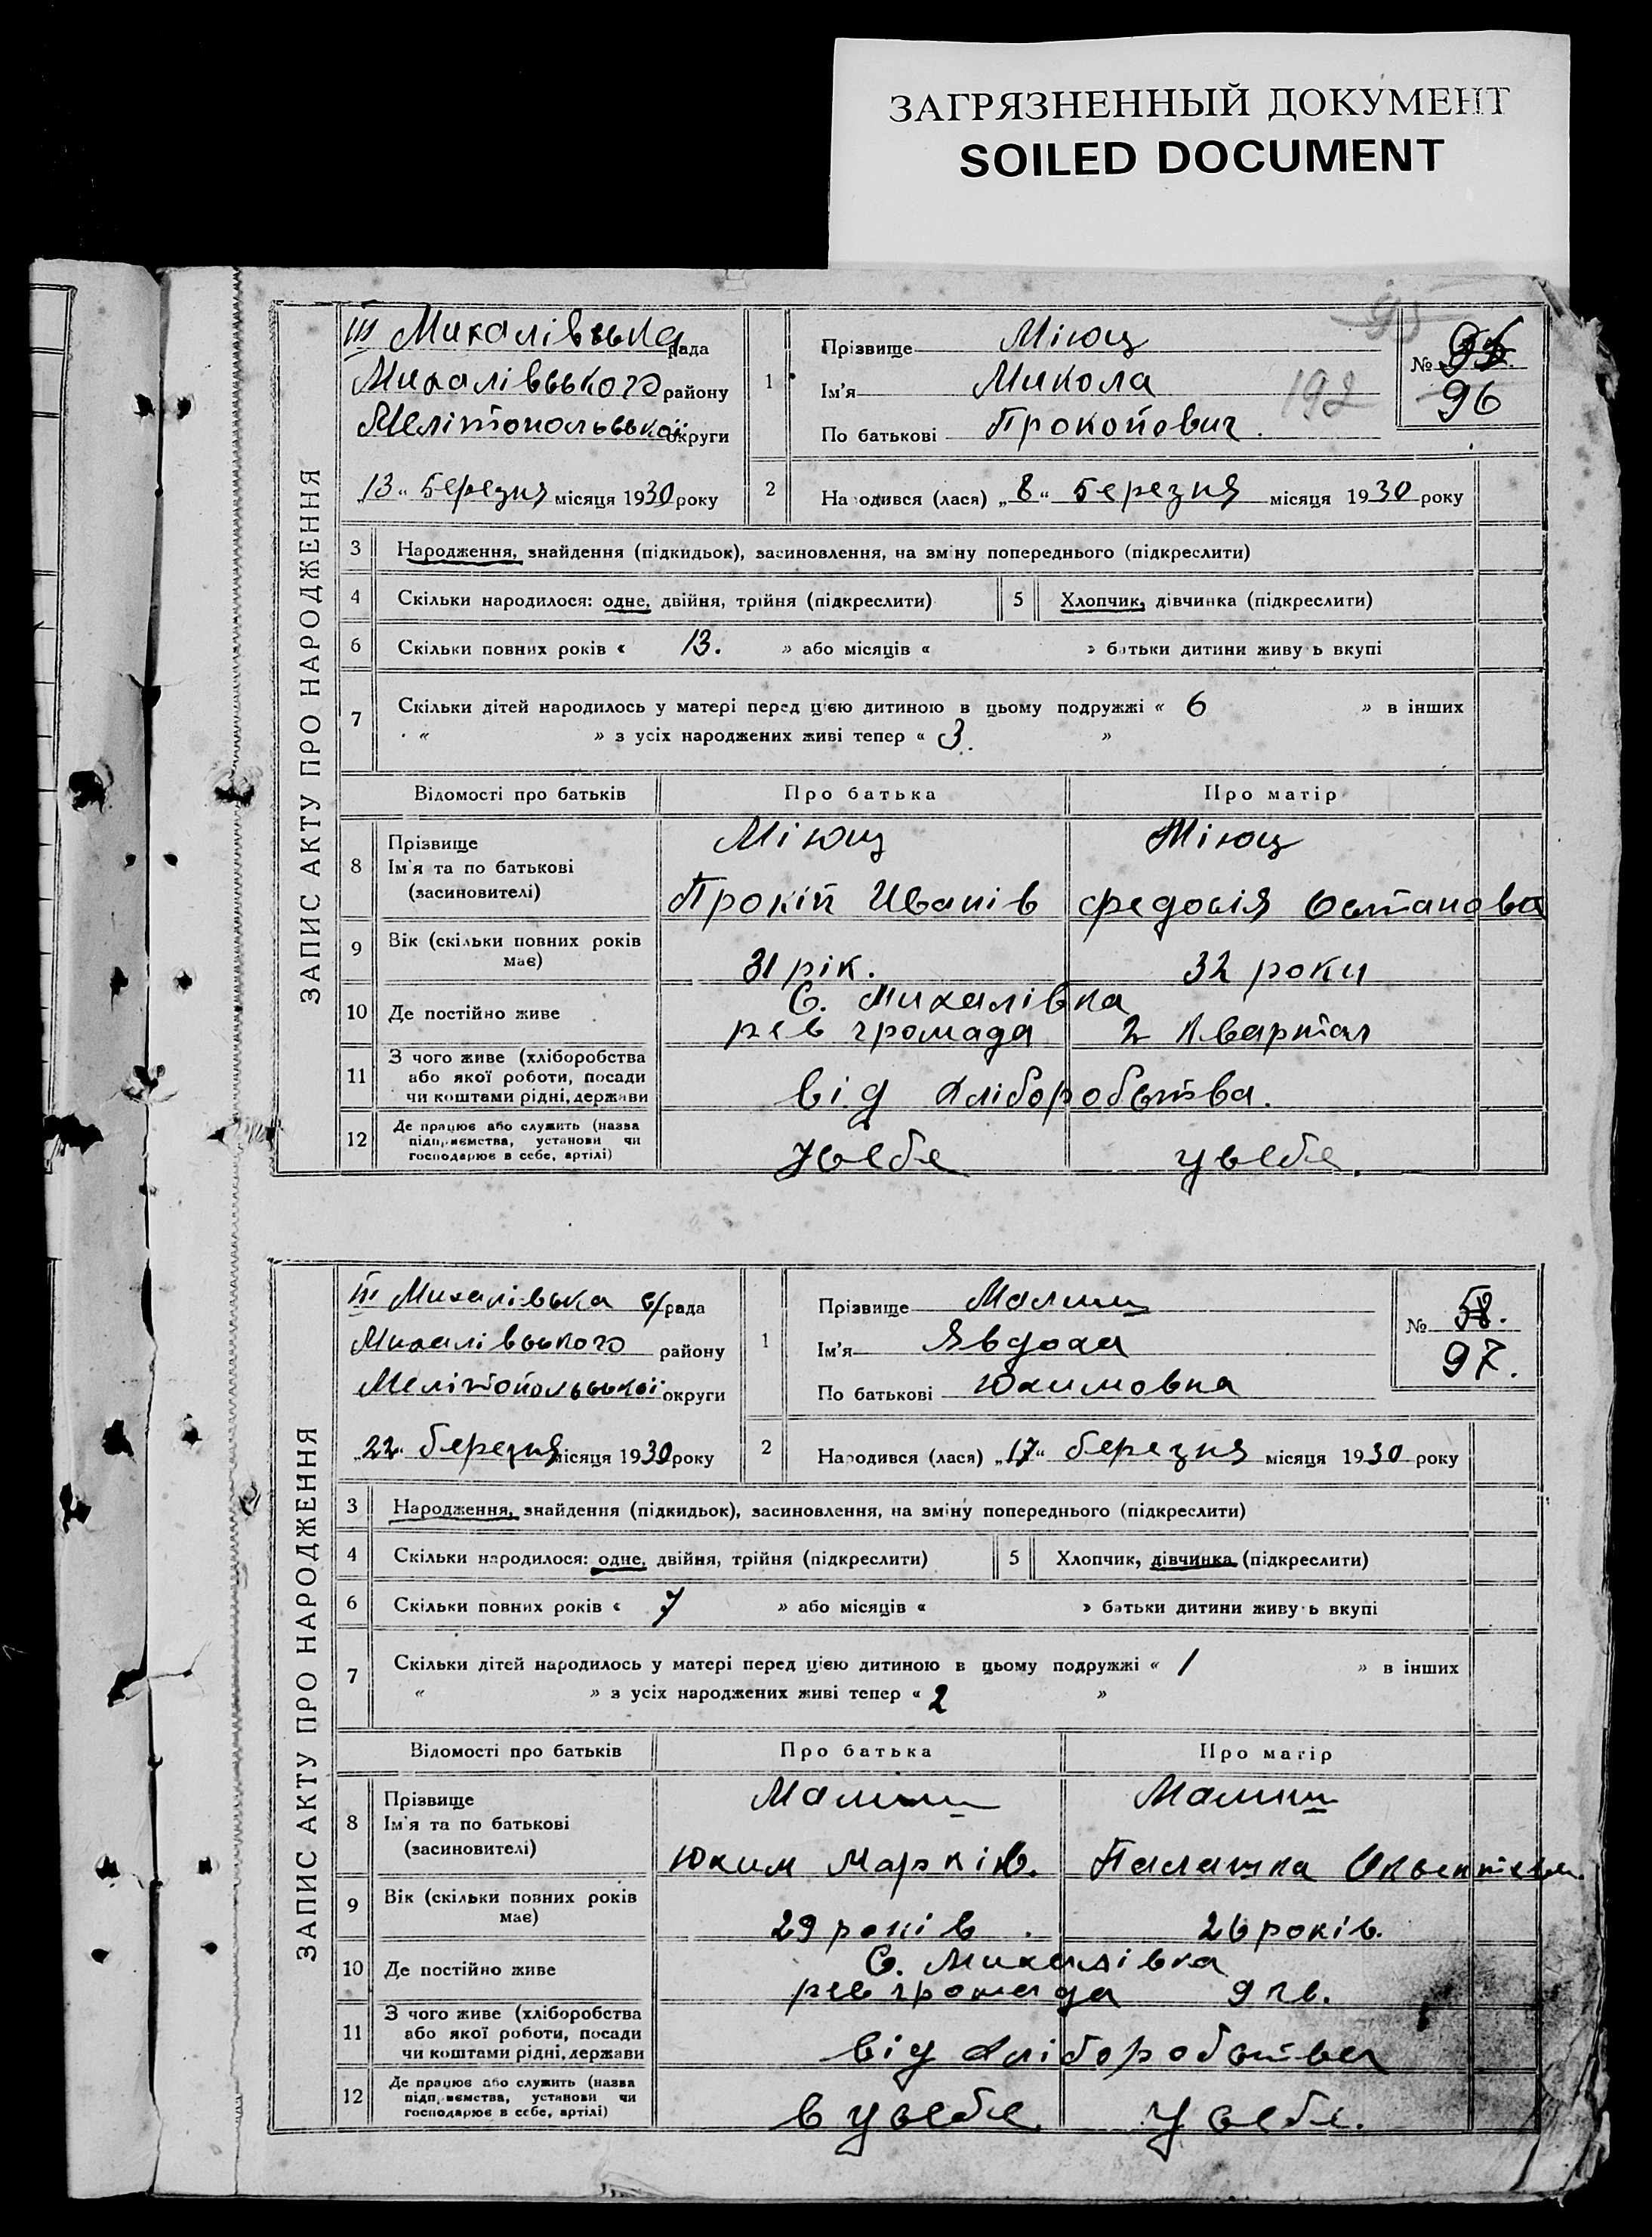 ЗАГРЯЗНЕННЫЙ ДОКУМЕНТ
SOILED DOCUMENT
ЗАПИС АКТУ ПРО НАРОДЖЕННЯ
III Михалівська рада
Михалівського району
Мелітопольської округи
„13“ Березня місяця 1930 року
1
Прізвище Міюц
Ім'я Микола
По батькові Прокопович.
192
№
96
2
На одився (лася) „8“ Березня місяця 1930 року
3 Народження, знайдення (підкидьок), засиновлення, на зміну попереднього (підкреслити)
4 Скільки народилося: одне, двійня, трійня (підкреслити)
5 Хлопчик, дівчинка (підкреслити)
6 Скільки повних років « 13. » або місяців « » батьки дитини живу ь вкупі
7 Скільки дітей народилось у матері перед цією дитиною в цьому подружжі « 6 » в інших
« » з усіх народжених живі тепер « 3. »
Відомості про батьків Про батька Про матір
8 Прізвище
Ім'я та по батькові
(засиновителі)
Міюц
Прокіп Иванів
Міюц
Федосія Остапова
9 Вік (скільки повних років
має)
31 рік. 32 роки
10 Де постійно живе
С. Михалівка
рев громада 2 квартал
11 З чого живе (хліборобства
або якої роботи, посади
чи коштами рідні, держави
від хліборобства.
12 Де працює або служить (назва
підприємства, установи чи
господарює в себе, артілі)
у себе у себе.
ЗАПИС АКТУ ПРО НАРОДЖЕННЯ
III Михалівська с/рада
Михалівського району
Мелітопольської округи
„22“ березня місяця 1930 року
1
Прізвище Малиш
Ім'я Явдоха
По батькові Юхимовна
№ 58.
97.
2
Народився (лася) „17“ березня місяця 1930 року
3 Народження, знайдення (підкидьок), засиновлення, на зміну попереднього (підкреслити)
4 Скільки народилося: одне, двійня, трійня (підкреслити)
5 Хлопчик, дівчинка (підкреслити)
6 Скільки повних років « 7 » або місяців « » батьки дитини живу ь вкупі
7 Скільки дітей народилось у матері перед цією дитиною в цьому подружжі « 1 » в інших
« » з усіх народжених живі тепер « 2 »
Відомості про батьків Про батька Про матір
8 Прізвище
Ім'я та по батькові
(засиновителі)
Малиш
Юхим Марків.
Малиш
Палашка
9 Вік (скільки повних років
має)
29 років 26 років.
10 Де постійно живе
С. Михалівка
рев громада 9 кв.
11 З чого живе (хліборобства
або якої роботи, посади
чи коштами рідні, держави
від хліборобства
12 Де працює або служить (назва
підприємства, установи чи
господарює в себе, артілі)
в у себе у себе.